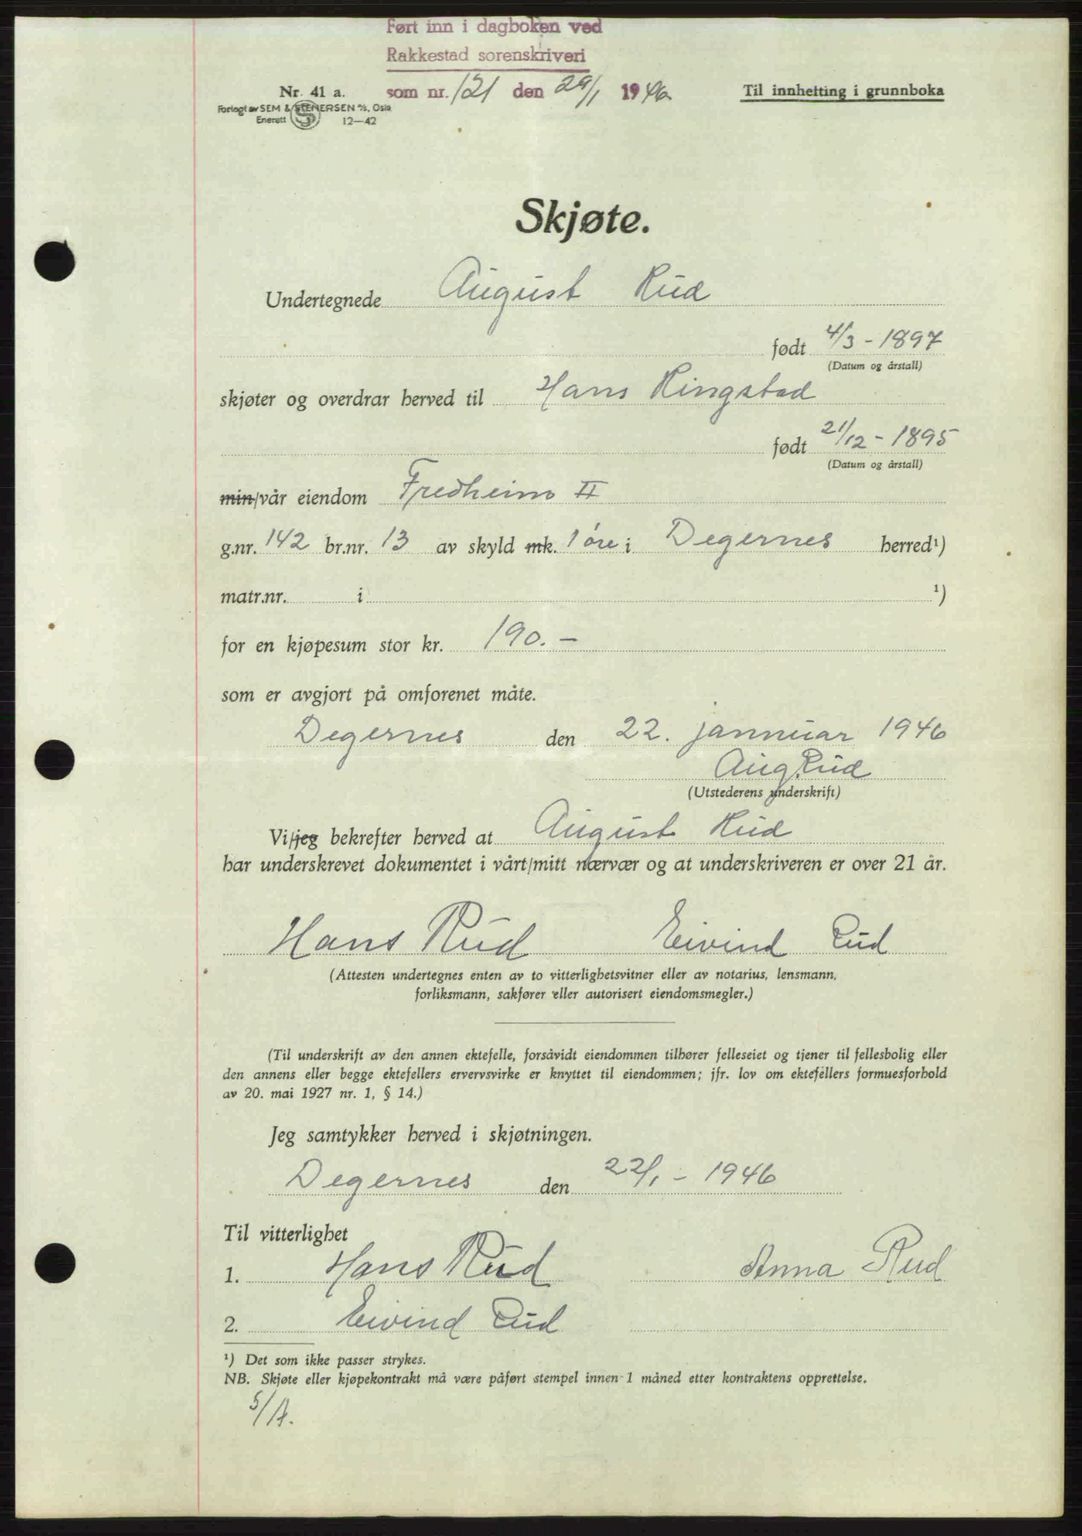 Ført inn i dagboken ved
Rakkestad sorenskriveri
som nr. 121 den 29/1 1946
Nr. 41 a.
Forlagt av SEM & STENERSEN A/S, Oslo
Enerett 12—42
Til innhefting i grunnboka
Skjøte.
Undertegnede August Rud
født 4/3 - 1897
(Datum og årstall)
skjøter og overdrar herved til Hans Ringstad
født 21/12 - 1895
(Datum og årstall)
min/vår eiendom Fredheim II
g.nr. 142 br.nr. 13 av skyld mk. 1 øre i Degernes herred¹)
matr.nr. i ¹)
for en kjøpesum stor kr. 190. -
som er avgjort på omforenet måte.
Degernes den 22. januar 1946
Aug. Rud
(Utstederens underskrift)
Vi/jeg bekrefter herved at August Rud
har underskrevet dokumentet i vårt/mitt nærvær og at underskriveren er over 21 år.
Hans Rud Eivind Rud
(Attesten undertegnes enten av to vitterlighetsvitner eller av notarius, lensmann,
forliksmann, sakfører eller autorisert eiendomsmegler.)
(Til underskrift av den annen ektefelle, forsåvidt eiendommen tilhører felleseiet og tjener til fellesbolig eller
den annens eller begge ektefellers ervervsvirke er knyttet til eiendommen; jfr. lov om ektefellers formuesforhold
av 20. mai 1927 nr. 1, § 14.)
Jeg samtykker herved i skjøtningen.
Degernes den 22/1 - 1946
Til vitterlighet
1. Hans Rud Anna Rud
2. Eivind Rud
¹) Det som ikke passer strykes.
NB. Skjøte eller kjøpekontrakt må være påført stempel innen 1 måned etter kontraktens opprettelse.
S/A.